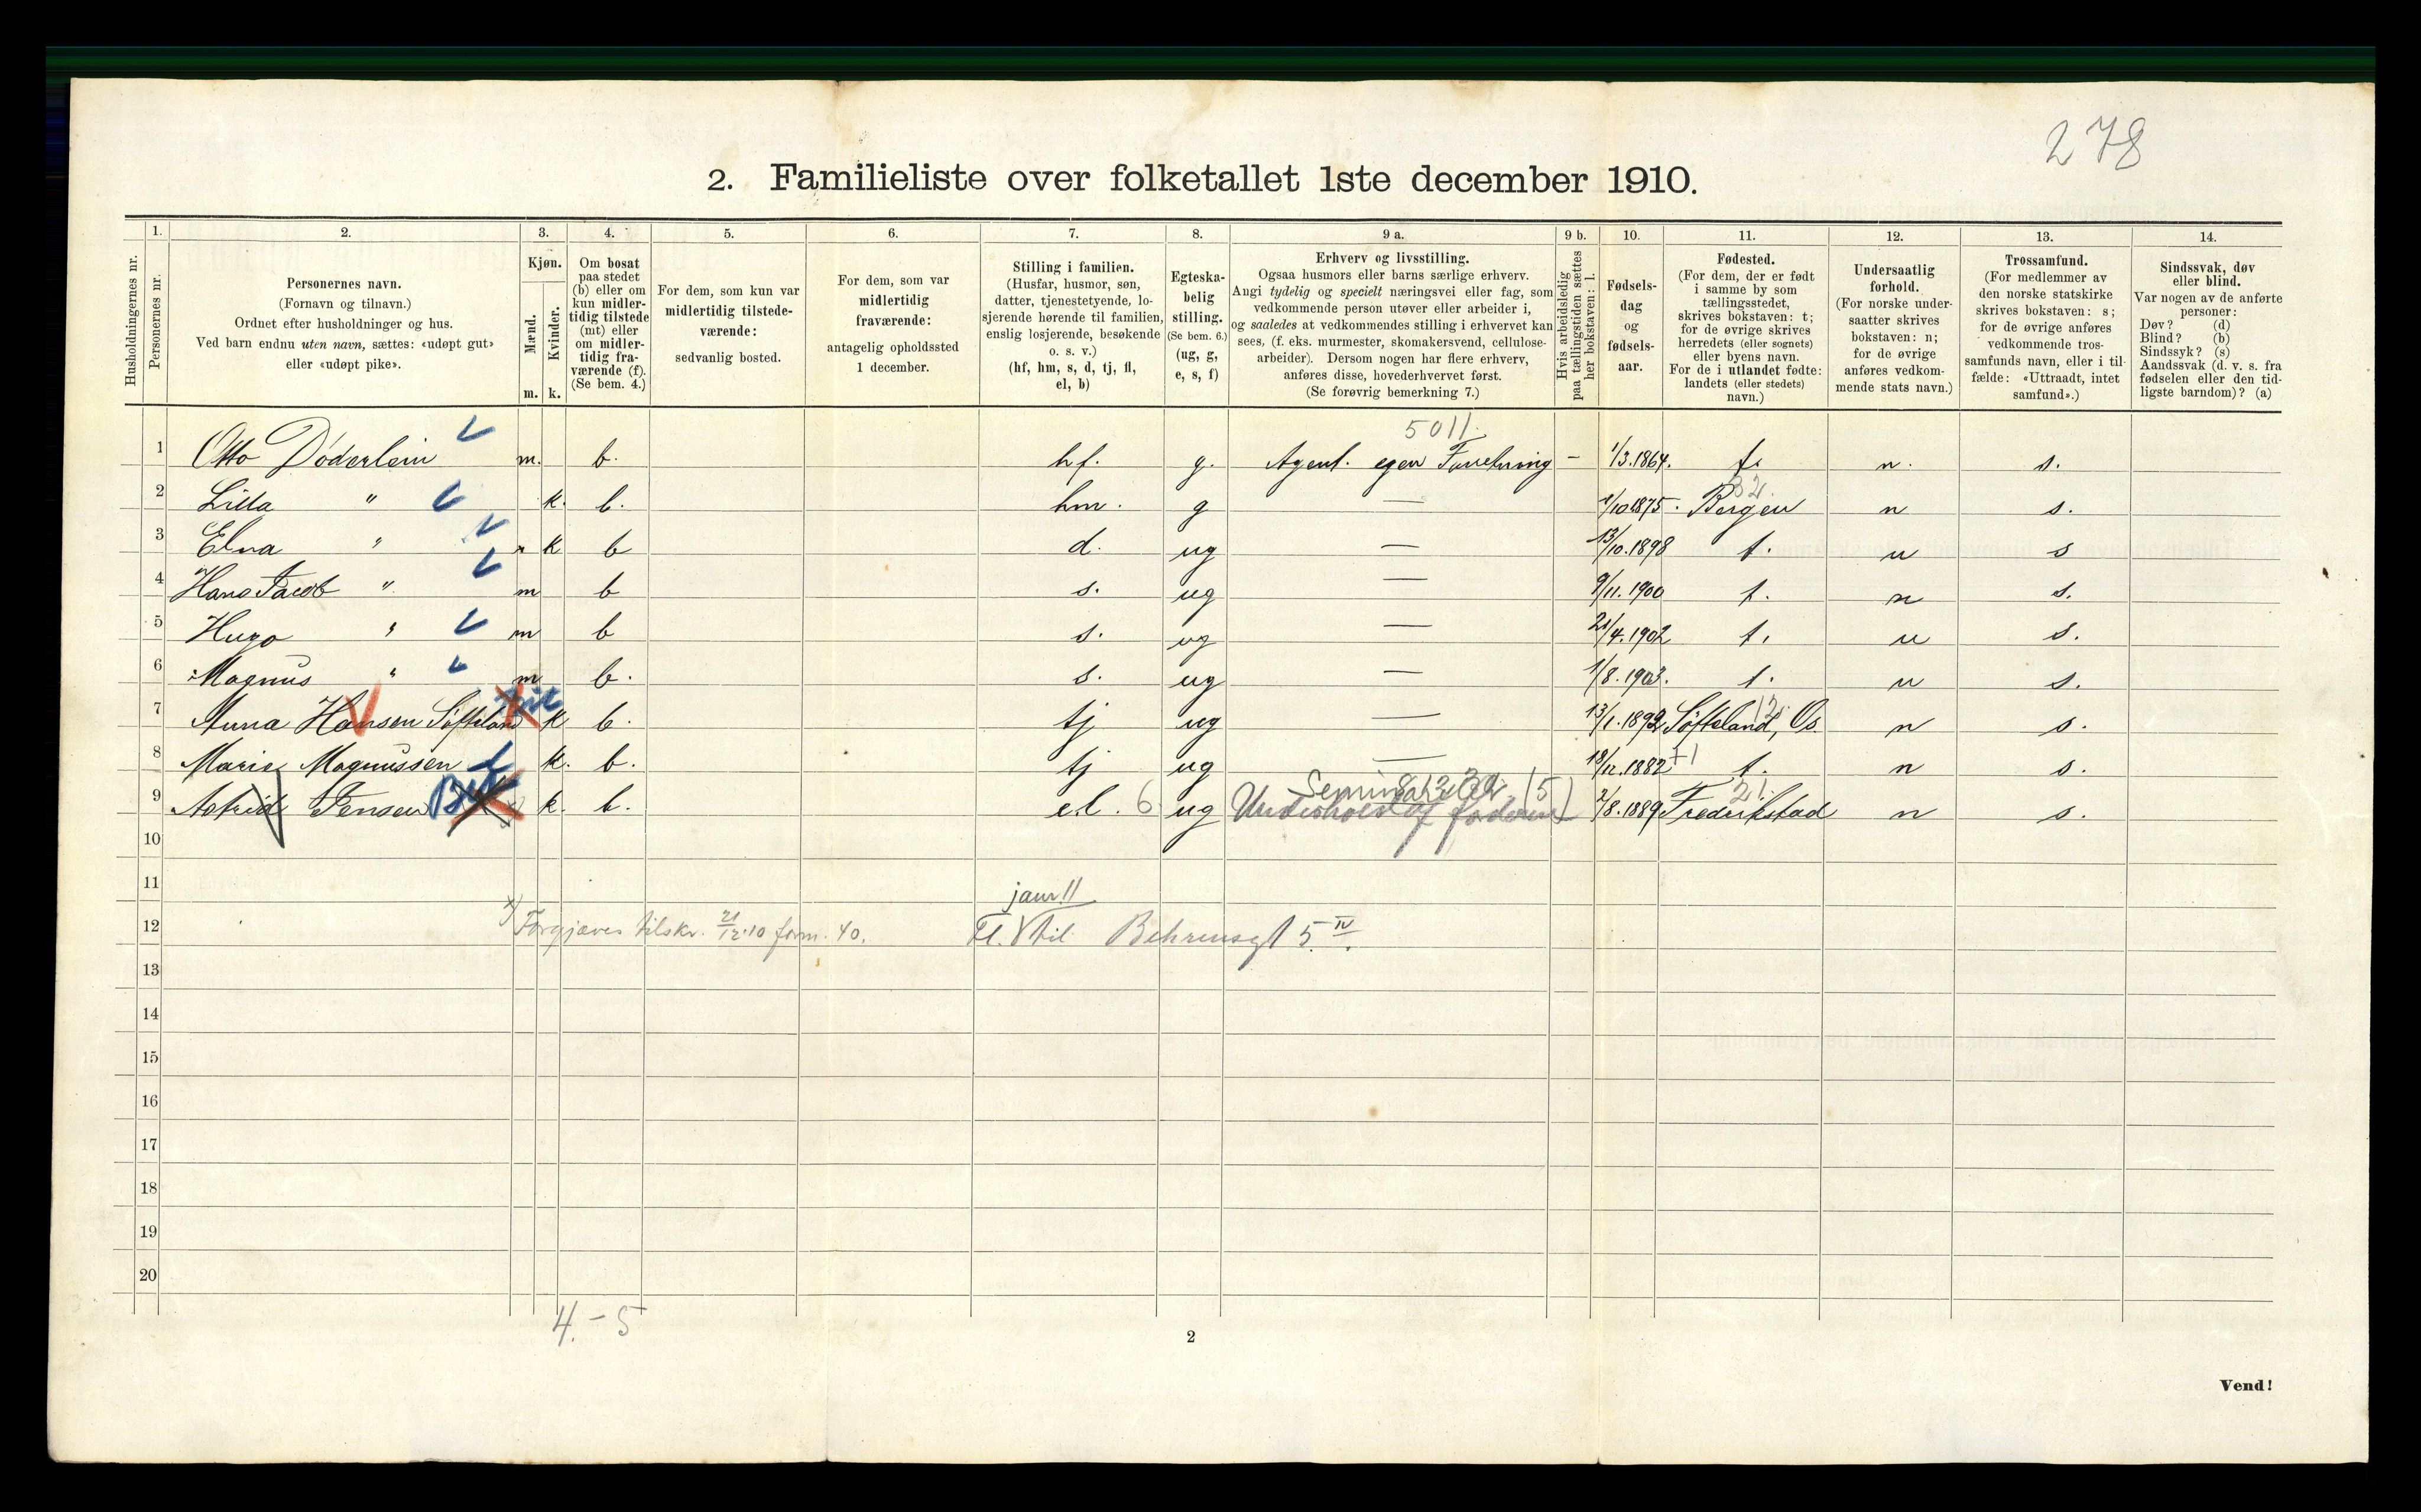 278
2. Familieliste over folketallet 1ste december 1910.
Husholdningernes nr.
1. Personernes nr.
2. Personernes navn.
(Fornavn og tilnavn.)
Ordnet efter husholdninger og hus.
Ved barn endnu uten navn, sættes: «udøpt gut»
eller «udøpt pike».
3. Kjøn.
Mænd. m.
Kvinder. k.
4. Om bosat
paa stedet
(b) eller om
kun midler-
tidig tilstede
(mt) eller
om midler-
tidig fra-
værende (f).
(Se bem. 4.)
5. For dem, som kun var
midlertidig tilstede-
værende:
sedvanlig bosted.
6. For dem, som var
midlertidig
fraværende:
antagelig opholdssted
1 december.
7. Stilling i familien.
(Husfar, husmor, søn,
datter, tjenestetyende, lo-
sjerende hørende til familien,
enslig losjerende, besøkende
o. s. v.)
(hf, hm, s, d, tj, fl,
el, b)
8. Egteska-
belig
stilling.
(Se bem. 6.)
(ug, g,
e, s, f)
9 a. Erhverv og livsstilling.
Ogsaa husmors eller barns særlige erhverv.
Angi tydelig og specielt næringsvei eller fag, som
vedkommende person utøver eller arbeider i,
og saaledes at vedkommendes stilling i erhvervet kan
sees, (f. eks. murmester, skomakersvend, cellulose-
arbeider). Dersom nogen har flere erhverv,
anføres disse, hovederhvervet først.
(Se forøvrig bemerkning 7.)
9 b. Hvis arbeidsledig
paa tællingstiden sættes
her bokstaven: l.
10. Fødsels-
dag
og
fødsels-
aar.
11. Fødested.
(For dem, der er født
i samme by som
tællingsstedet,
skrives bokstaven: t;
for de øvrige skrives
herredets (eller sognets)
eller byens navn.
For de i utlandet fødte:
landets (eller stedets)
navn.)
12. Undersaatlig
forhold.
(For norske under-
saatter skrives
bokstaven: n;
for de øvrige
anføres vedkom-
mende stats navn.)
13. Trossamfund.
(For medlemmer av
den norske statskirke
skrives bokstaven: s;
for de øvrige anføres
vedkommende tros-
samfunds navn, eller i til-
fælde: «Uttraadt, intet
samfund».)
14. Sindssvak, døv
eller blind.
Var nogen av de anførte
personer:
Døv? (d)
Blind? (b)
Sindssyk? (s)
Aandssvak (d. v. s. fra
fødselen eller den tid-
ligste barndom)? (a)
5011.
1 Otto Döderlein m. b. hf. g. Agent. egen Forretning – 1/3.1864. t. n. s.
32.
2 Lilla " k. b. hm. g — /10 1875. Bergen n s.
3 Elna " k b d. ug — 13/10.1898 t. n s
4 Hans Jacob " m b s. ug — 9/11.1900 t. n s.
5 Hugo " m b s. ug — 21/4.1902 t. n s.
6 Magnus " m b. s. ug — 1/8.1903. t. n s.
12
7 Anna Hansen Søfteland k b. tj ug — 13/1.1892 Søfteland, Os. n s.
8 Marie Magnussen k. b. tj ug — 18/12.1882 t. n s.
21.
9 Astrid Jensen k. b. el. 6 ug Underholdt af faderen 2/8.1889 Fredrikstad n s.
10
11
jan. 11
12 x) Forgjæves tilskr. 21/12.10 form. 40. Fl. til Behrensgt 5 IV.
13
14
15
16
17
18
19
20
4.-5
2
Vend!